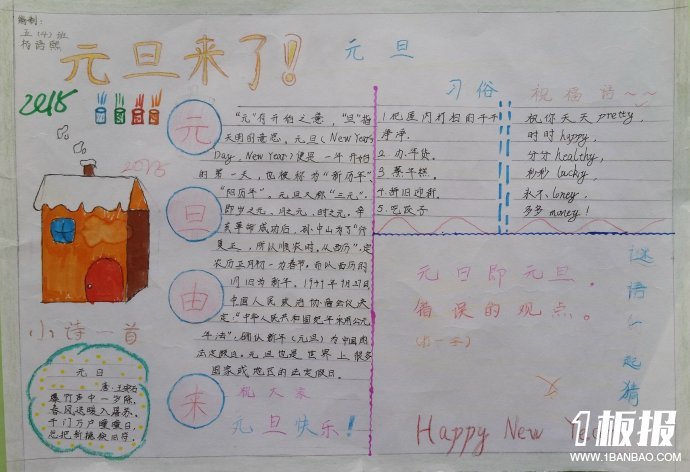 编制：
五（4）班
杨诗熙
元旦来了！
2015
2015
小诗一首
元日
唐·王安石
爆竹声中一岁除，
春风送暖入屠苏。
千门万户曈曈日，
总把新桃换旧符。
元
旦
由
来
"元"有开始之意，"旦"指
天明的意思。元旦（New Year's
Day，New Year）便是一年开始
的第一天，也被称为"新历年"、
"阳历年"。元旦又称"三元"，
即岁之元、月之元、时之元。辛
亥革命成功后，孙中山为了"行
夏正，所以顺农时，从西历"，定
农历正月初一为春节，而以西历的
1月1日为新年。1949年9月27日
中国人民政治协商会议决
定："中华人民共和国纪年采用公元
年法"，确认新年（元旦）为中国的
法定假日。元旦也是世界上很多
国家或地区的法定假日。
祝大家
元旦快乐！
元旦
习俗
1.把屋内打扫的干干
净净.
2.办年货.
3.蒸年糕.
4.辞旧迎新.
5.吃饺子
祝福语～～
祝你天天pretty，
时时happy，
分分healthy，
秒秒lucky，
永不loney，
多多money！
谜语一起猜
元日即元旦。
错误的观点。
（打一字）
Happy New Year
1板报
WWW.1BANBAO.COM